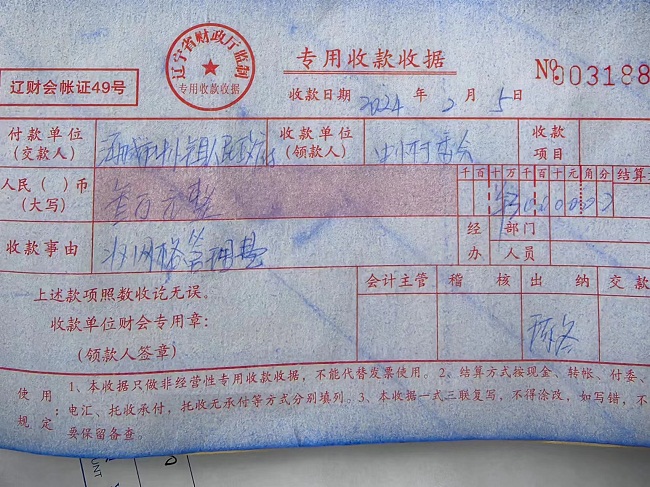 辽宁省财政厅监制
专用收款收据
专用收款收据
No.003188
辽财会帐证49号
收款日期 2024 年 2 月 5 日
付款单位
(交款人)
人民政府
收款单位
(领款人)
村委会
收款
项目
人民( )币
(大写)
壹万元整
千 百 十 万 千 百 十 元 角 分 结算
收款事由
网格管理费
经
办
部门
人员
上述款项照数收讫无误。
收款单位财会专用章:
(领款人签章)
会计主管 稽 核 出 纳 交款
使用规定:
1、本收据只做非经营性专用收款收据,不能代替发票使用。2、结算方式按现金、转帐、付委、
电汇、托收承付,托收无承付等方式分别填列。3、本收据一式三联复写,不得涂改,如写错,不
要保留备查。